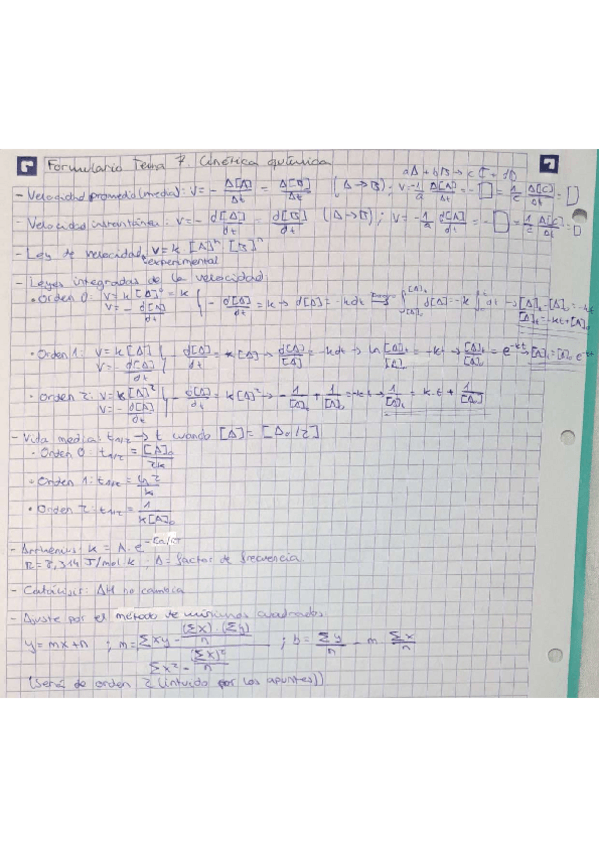 Formulario Tema 7. Cinética química
aA + bB → cC + dD
- Velocidad promedio (media): V = - Δ[A]/Δt = Δ[B]/Δt (A→B); V = -1/a Δ[A]/Δt = -□ = 1/c Δ[C]/Δt = □
- Velocidad instantánea: V = - d[A]/dt = d[B]/dt (A→B); V = -1/a d[A]/dt = -□ = 1/c Δ[C]/Δt = □
- Ley de velocidad: V = k [A]ⁿ [B]ⁿ
experimental
- Leyes integradas de la velocidad:
• Orden 0: V = k[A]⁰ = k
V = - d[A]/dt
- d[A]/dt = k → d[A] = -kdt ⟹ ∫ d[A] = -k ∫ dt → [A]ₜ - [A]₀ = -kt
[A]ₜ = -kt + [A]₀
• Orden 1: V = k[A]
V = - d[A]/dt
- d[A]/dt = k[A] → d[A]/[A] = -kdt → ln [A]ₜ/[A]₀ = -kt → [A]ₜ/[A]₀ = e^-kt → [A]ₜ = [A]₀ e^-kt
• Orden 2: V = k[A]²
V = - d[A]/dt
- d[A]/dt = k[A]² → - 1/[A]ₜ + 1/[A]₀ = -kt → 1/[A]ₜ = k·t + 1/[A]₀
- Vida media: t₁/₂ → t cuando [A] = [A₀/2]
• Orden 0: t₁/₂ = [A]₀/2k
• Orden 1: t₁/₂ = ln 2/k
• Orden 2: t₁/₂ = 1/k[A]₀
- Arrhenius: k = A · e^-Ea/RT
R = 8,314 J/mol k ; A = factor de frecuencia
- Catálisis: ΔH no cambia
- Ajuste por el método de mínimos cuadrados:
y = mx + n ; m = (Σxy - (Σx)·(Σy)/n) / (Σx² - (Σx)²/n) ; b = Σy/n - m Σx/n
(Será de orden 2 (intuido por los apuntes))